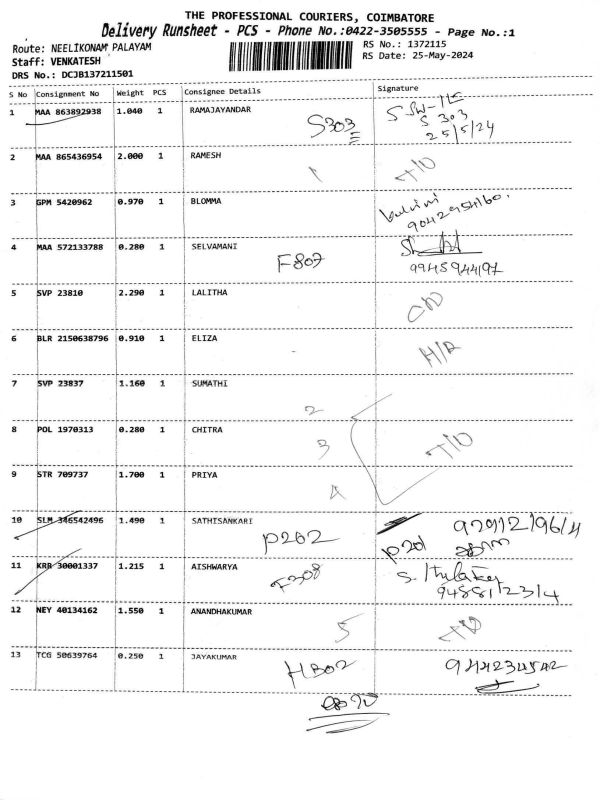 THE PROFESSIONAL COURIERS, COIMBATORE
Delivery Runsheet - PCS - Phone No.:0422-3505555 - Page No.:1
Route: NEELIKONAM PALAYAM
RS No.: 1372115
Staff: VENKATESH
RS Date: 25-May-2024
DRS No.: DCJB137211501
S No Consignment No Weight PCS Consignee Details Signature
1 MAA 863892938 1.040 1 RAMAJAYANDAR S303
S 303
25/5/24
2 MAA 865436954 2.000 1 RAMESH 1
3 GPM 5420962 0.970 1 BLOMMA
9042954160.
4 MAA 572133788 0.280 1 SELVAMANI F807
9945944197
5 SVP 23810 2.290 1 LALITHA
6 BLR 2150638796 0.910 1 ELIZA H/R
7 SVP 23837 1.160 1 SUMATHI 2
8 POL 1970313 0.280 1 CHITRA 3
9 STR 709737 1.700 1 PRIYA 4
10 SLM 346542496 1.490 1 SATHISANKARI P202
11 KRR 30001337 1.215 1 AISHWARYA F308
94881/23/4
12 NEY 40134162 1.550 1 ANANDHAKUMAR 5
13 TCG 50639764 0.250 1 JAYAKUMAR H302
944234542